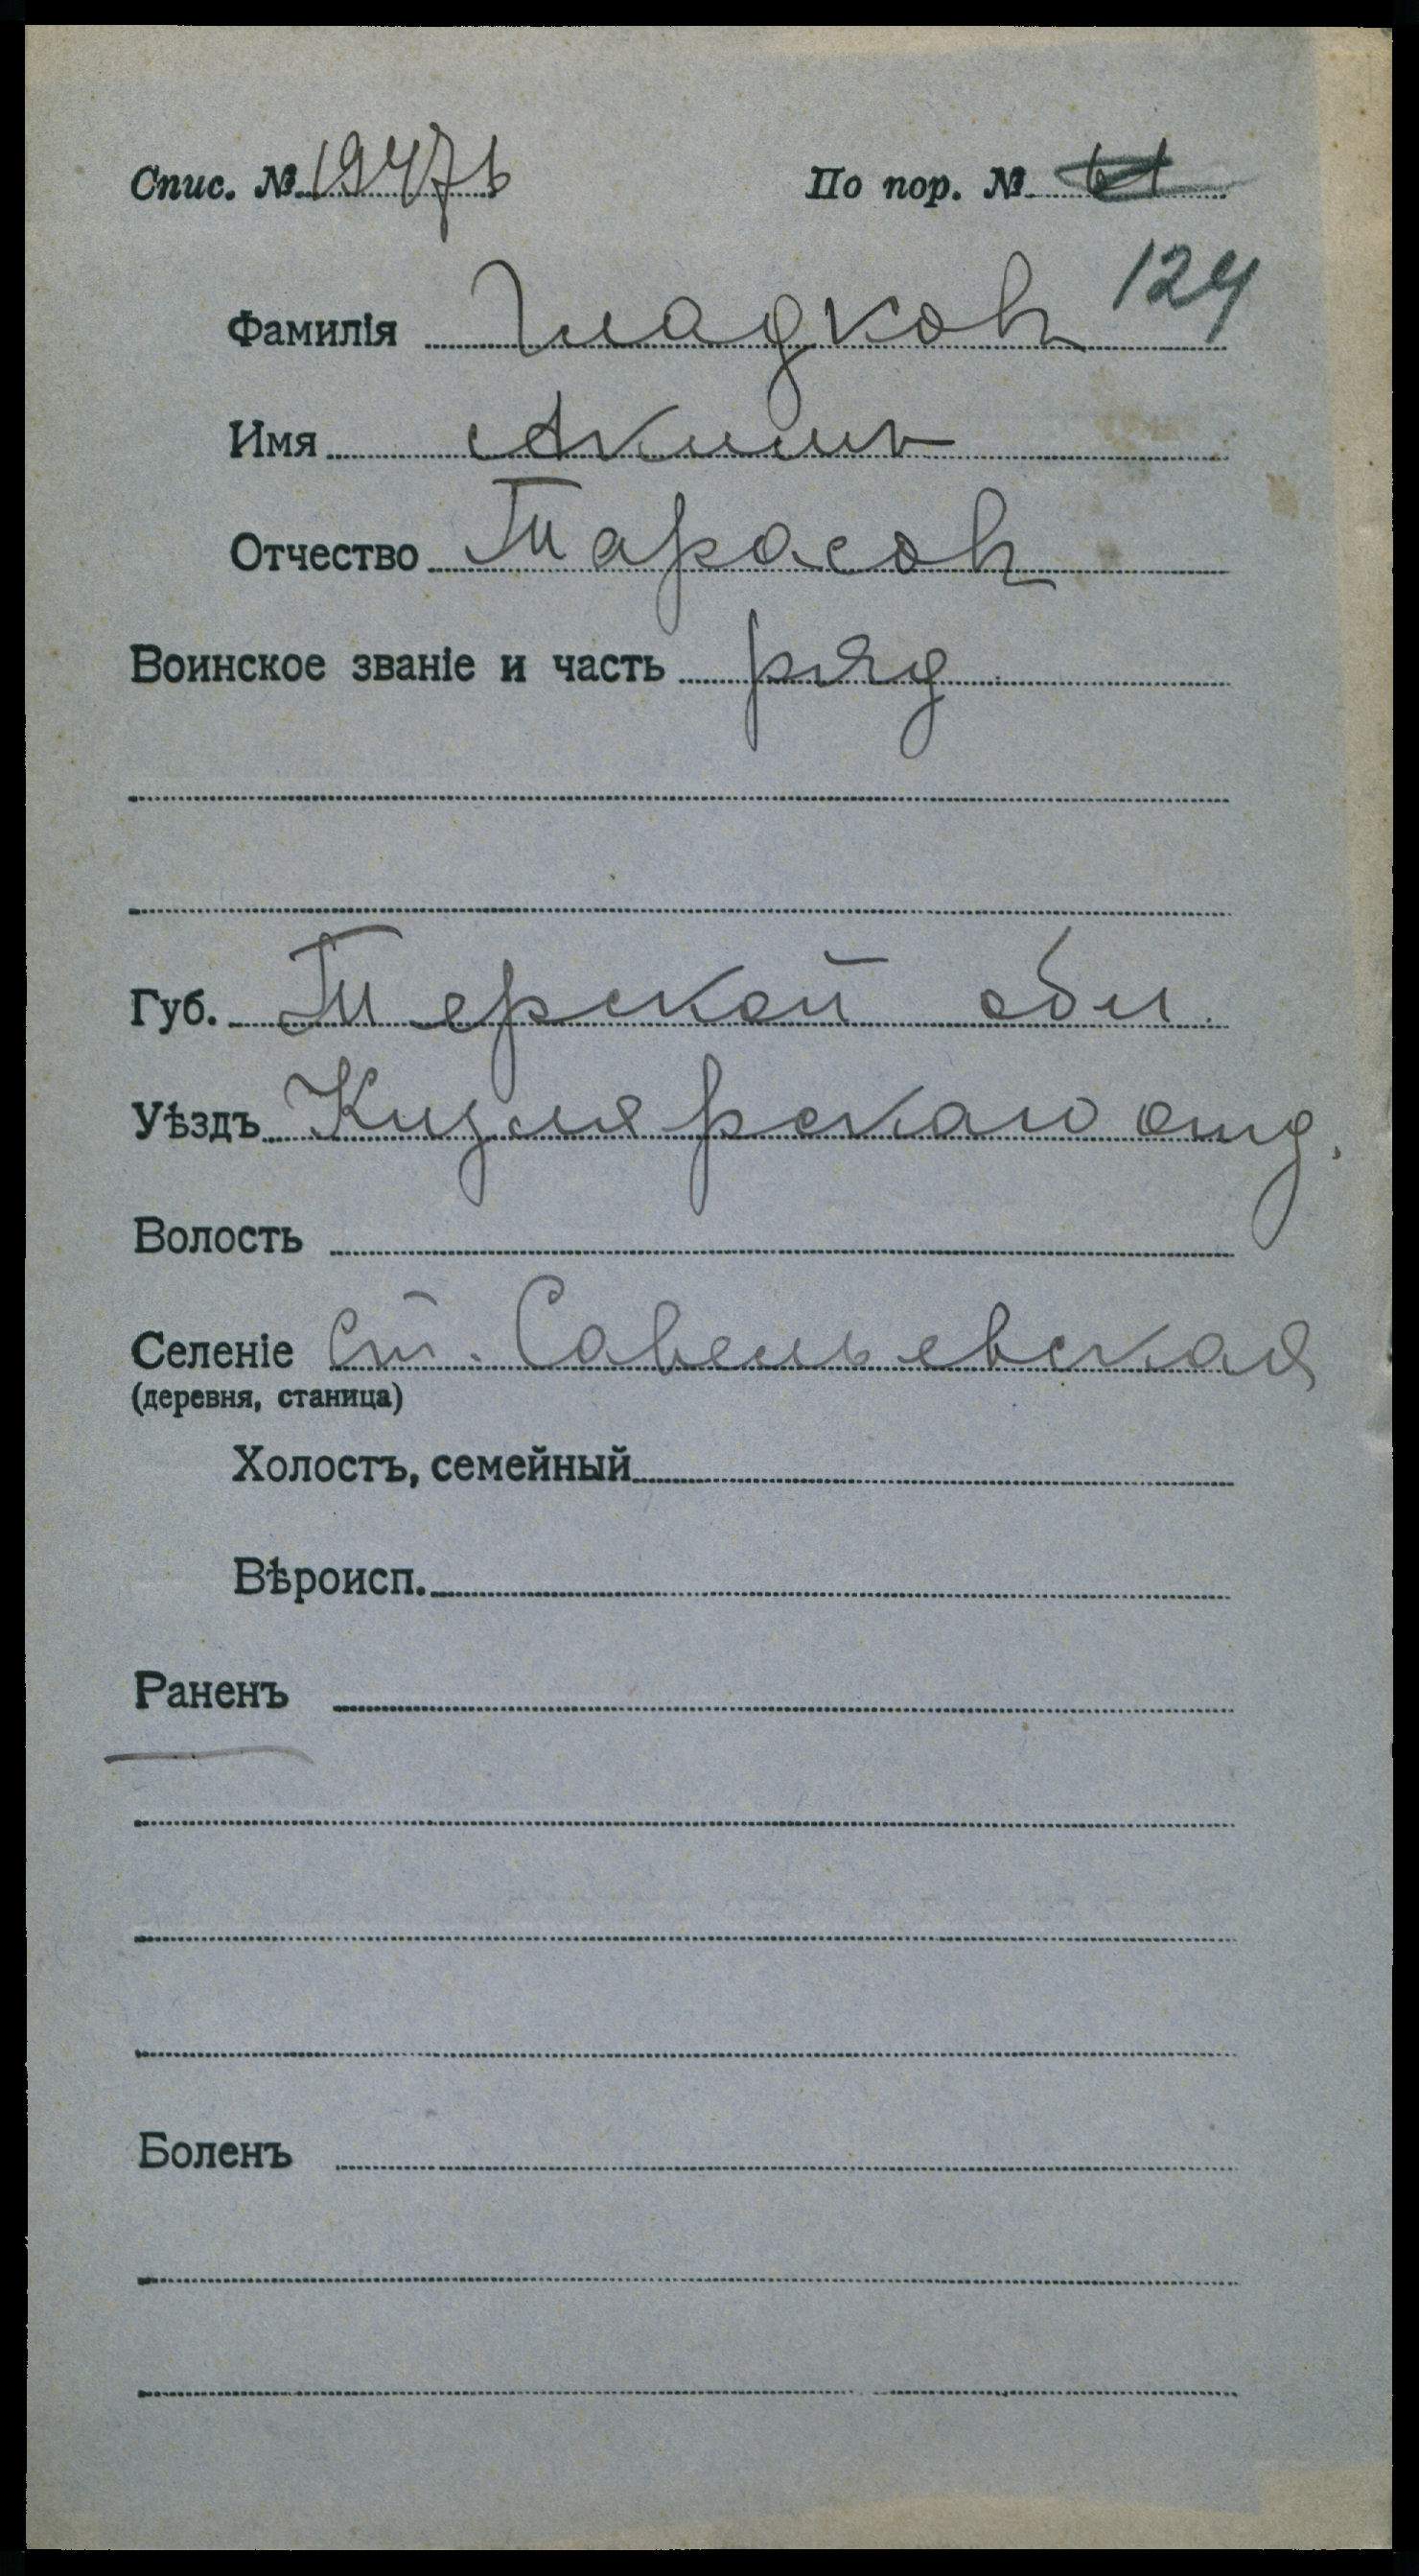 Спис. № 19476 По пор. №
124
Фамилія Гладковъ
Имя Акимъ
Отчество Тарасовъ
Воинское званіе и часть ряд
Губ. Терской обл.
Уѣздъ Кизлярскаго отд.
Волость
Селеніе Ст. Савельевская
(деревня, станица)
Холостъ, семейный
Вѣроисп.
Раненъ
Боленъ